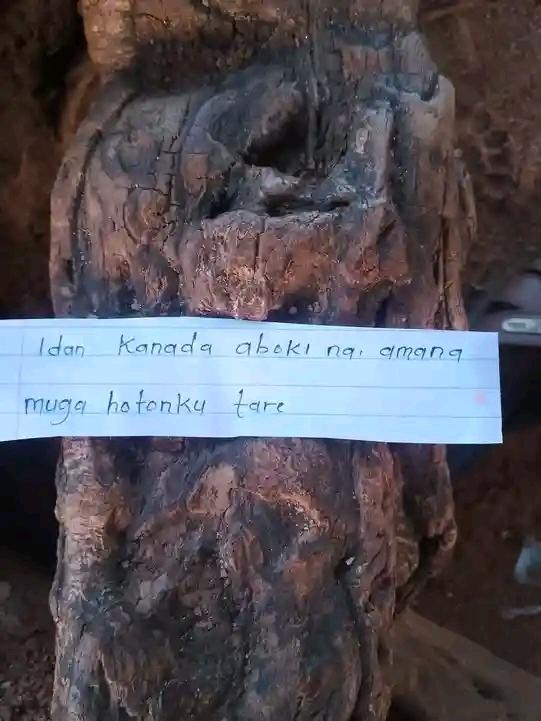 Idan Kanada aboki na, amana
muga hotonku tare